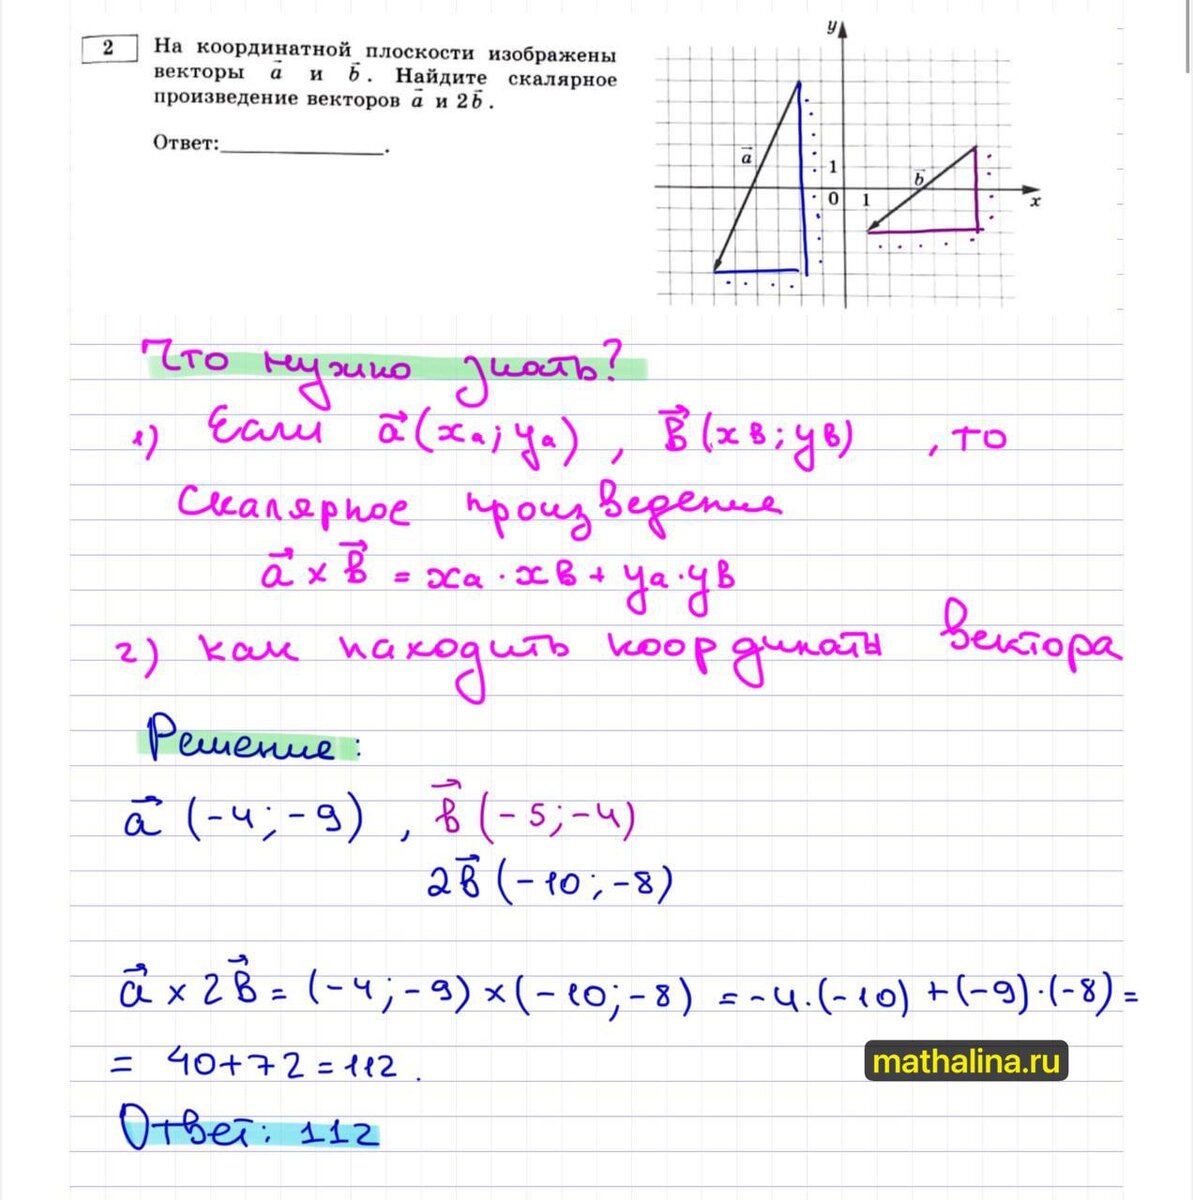 2
На координатной плоскости изображены
векторы a⃗ и b⃗. Найдите скалярное
произведение векторов a⃗ и 2b⃗.
Ответ:_______________.
y
a⃗
1
b⃗
0 1
x
Что нужно знать?
1) Если a⃗(xa; ya), b⃗(xb; yb), то
скалярное произведение
a⃗ × b⃗ = xa · xb + ya · yb
2) как находить координаты вектора
Решение:
a⃗ (-4; -9), b⃗ (-5; -4)
2b⃗ (-10; -8)
a⃗ × 2b⃗ = (-4; -9) × (-10; -8) = -4·(-10) + (-9)·(-8) =
= 40+72=112.
mathalina.ru
Ответ: 112